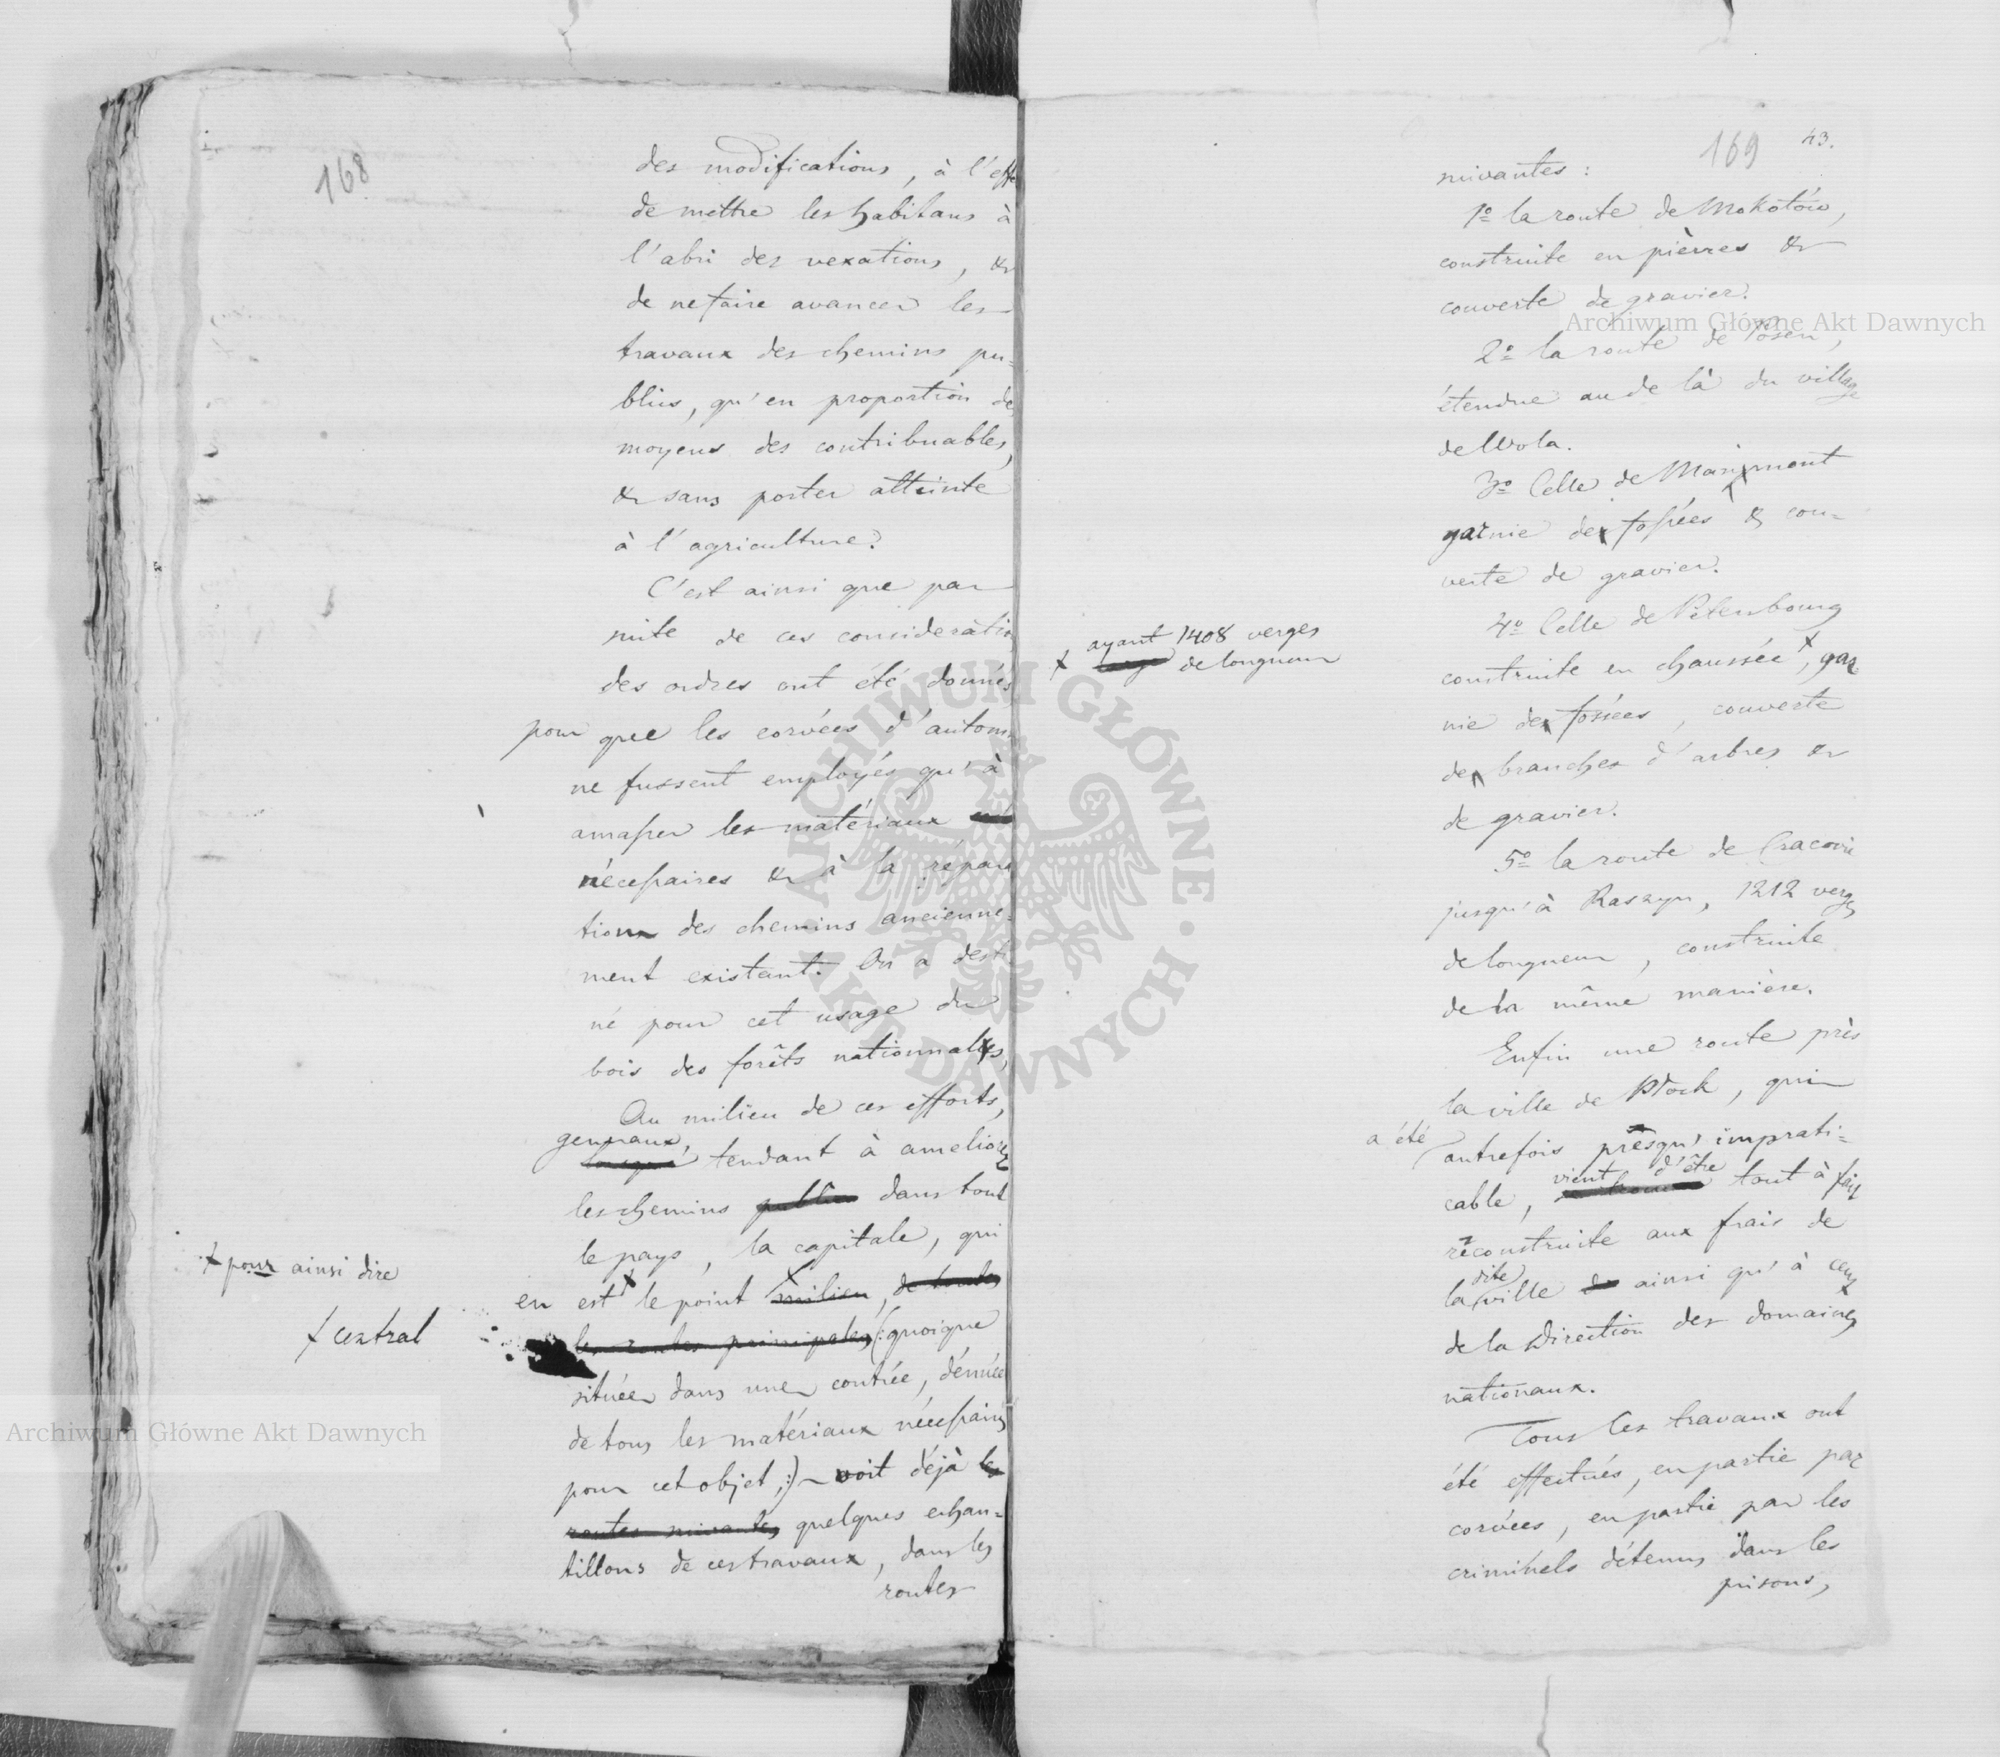 168
des modifications, à l'effe
de mettre les habitans à
l'abri des vexations, &
de ne faire avancer les
travaux des chemins pu=
blics, qu'en proportion des
moyens des contribuables,
& sans porter atteinte
à l'agriculture.
C'est ainsi que par
suite de ces consideratio
des ordres ont été donnés
pour que les corvées d'autom
ne fussent employés qu'à
amasser les matériaux
nécessaires & à la répara
tion des chemins ancienne=
ment existant. On a desti
né pour cet usage du
bois des forêts nationnales,
Au milieu de ces efforts,
generaux, tendant à ameliorer
les chemins publics dans tout
le pays, la capitale, qui
+ pour ainsi dire
en est + le point milieu, de toutes
+ central
les routes principales (: quoique
située dans une contrée, dénuée
de tous les matériaux nécessaires
pour cet objet ;) voit déjà les
routes suivantes quelques echan=
tillons de ces travaux, dans les
routes
169 43.
suivantes :
1º la route de Mokotów,
construite en pièrres &
couverte de gravier.
2º la route de Posen,
étendue au de là du village
de Wola.
3º Celle de Marymont
garnie de fossées & cou=
verte de gravier.
4º Celle de Petersbourg
+ ayant 1408 verges
de longueur
construite en chaussée +, gar
nie de fossées, couverte
de branches d'arbres &
de gravier.
5º la route de Cracovie
jusqu'à Raszyn, 1212 verges
de longueur, construite
de la même manière.
Enfin une route près
la ville de Płock, qui
a été
autrefois presqu'imprati=
cable, vient d'être tout à fait
reconstruite aux frais de
la dite ville ainsi qu'à ceux
de la Direction des domaines
nationaux.
Tous les travaux ont
été effectués, en partie par
corvées, en partie par les
criminels détenus dans les
prisons,
Archiwum Główne Akt Dawnych
Archiwum Główne Akt Dawnych
ARCHIWUM GŁÓWNE AKT DAWNYCH